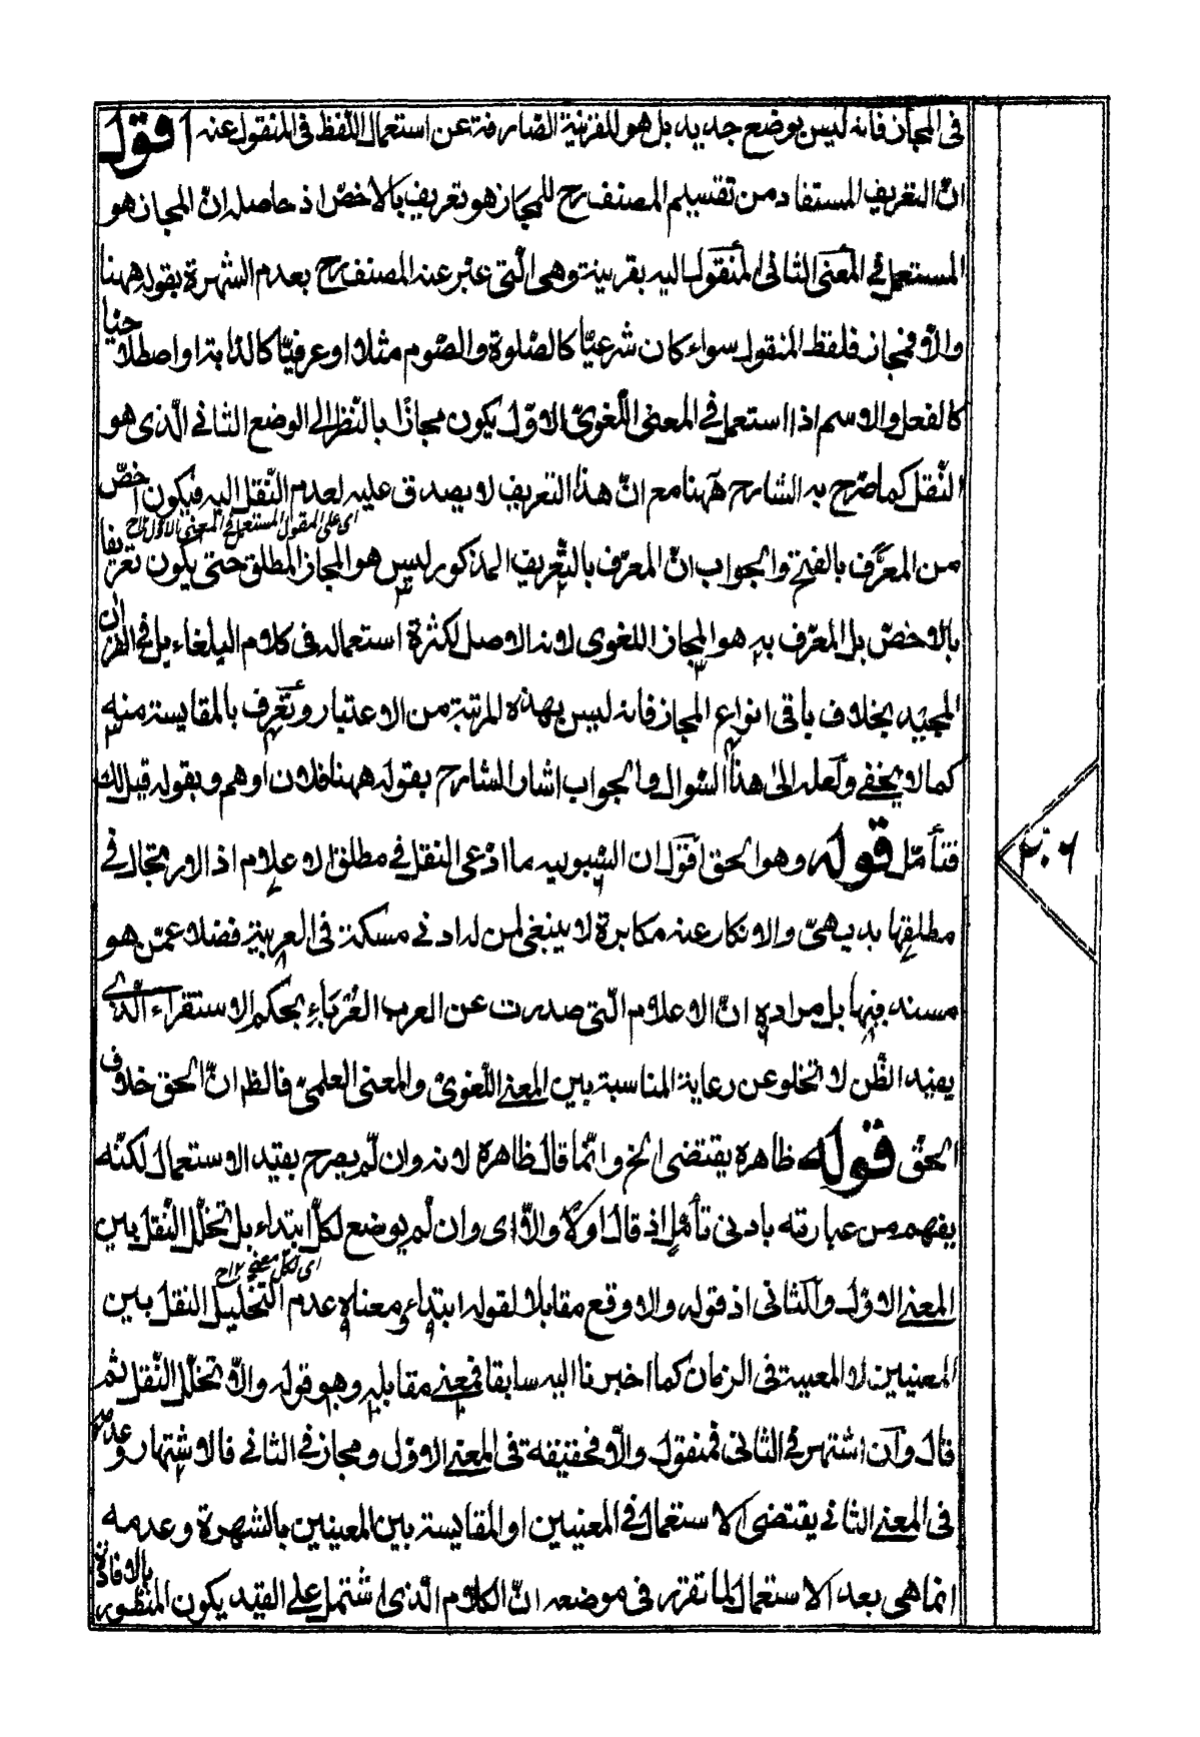 فى المجاز فانه ليس بوضع جديد بل هو للقرينة الصارفة عن استعمال اللفظ فى المنقول عنه اقول
انّ التعريف المستفاد من تقسيم المصنف رح للمجاز هو تعريف بالاخصّ اذ حاصله انّ المجاز هو
المستعمل فے المعنى الثانى المنقول اليه بقرينة وهى الّتى عبّر عنه المصنف رح بعدم الشهرة بقوله ههنا
والّا فمجاز فلفظ المنقول سواء كان شرعيّا كالصلوة والصّوم مثلا او عرفيّا كالدابة او اصطلاحيّا
كالفعل والاسم اذا استعمل فے المعنى اللّغوىّ الاوّل يكون مجازًا بالنّظر الى الوضع الثانے الّذى هو
النّقل كما صرّح به الشارح ههنا مع انّ هذا التعريف لا يصدق عليه لعدم النّقل اليه فيكون اخصّ
اى على المنقول المستعمل فے المعنى الاول ١٢ح
من المعرَّف بالفتح والجواب انّ المعرّف بالتّعريف المذكور ليس هو المجاز المطلق حتى يكون تعريفا
بالاخصّ بل المعرّف به هو المجاز اللغوى لانه الاصل لكثرة استعماله فى كلام البلغاء بل فے القران
المجيد بخلاف باقى انواع المجاز فانه ليس بهذه المرتبة من الاعتبار وتعرف بالمقايسة منه
كما لا يخفے ولعله الى هذا السّوال والجواب اشار الشارح بقوله ههنا فلان اوهم وبقوله قبيل ذلك
فتأمّل قوله وهو الحق اقول ان السيبويه ما ادّعى النقل فے مطلق الاعلام اذ الارتجال فے
مطلقها بديهىّ والانكار عنه مكابرة لا ينبغى لمن له ادنے مسكة فى العربية فضلا عمّن هو
مسند فيها بل مراده انّ الاعلام الّتى صدرت عن العرب العُرَبَاءِ بحكم الاستقراء الّذے
يفيد الظّن لا تخلو عن رعاية المناسبة بين المعنے اللّغوىّ والمعنى العلمىّ فالظ انّ الحق خلاف
الحقّ قوله ظاهره يقتضى الخ وانّما قال ظاهره لانه وان لّم يصرح بقيد الاستعمال لكنّه
يفهم من عبارته بادنى تأمّل اذ قال اوّلا والّا اى وان لّم يوضع لكلّ ابتداء بل تخلّل النّقل بين
اى لكل معنے ١٢ح
المعنے الاوّل والثانى اذ قوله والا وقع مقابلا لقوله ابتداء ومعناه عدم التخليل النقل بين
المعنيين لا المعية فى الزمان كما اخبرنا اليه سابقا فمعنے مقابله وهو قوله والّا تخلّل النّقل ثم
قال وان اشتهر فے الثانى فمنقول والّا فحقيقة فى المعنے الاوّل ومجاز فے الثانے فالاشتهار وعدمه
فى المعنے الثانے يقتضى الاستعمال فے المعنيين او المقايسة بين المعينين بالشهرة وعدمه
انما هى بعد الاستعمال لما تقرّر فى موضعه انّ الكلام الّذى اشتمل على القيد يكون المنظور بالافادة
٢٠٦